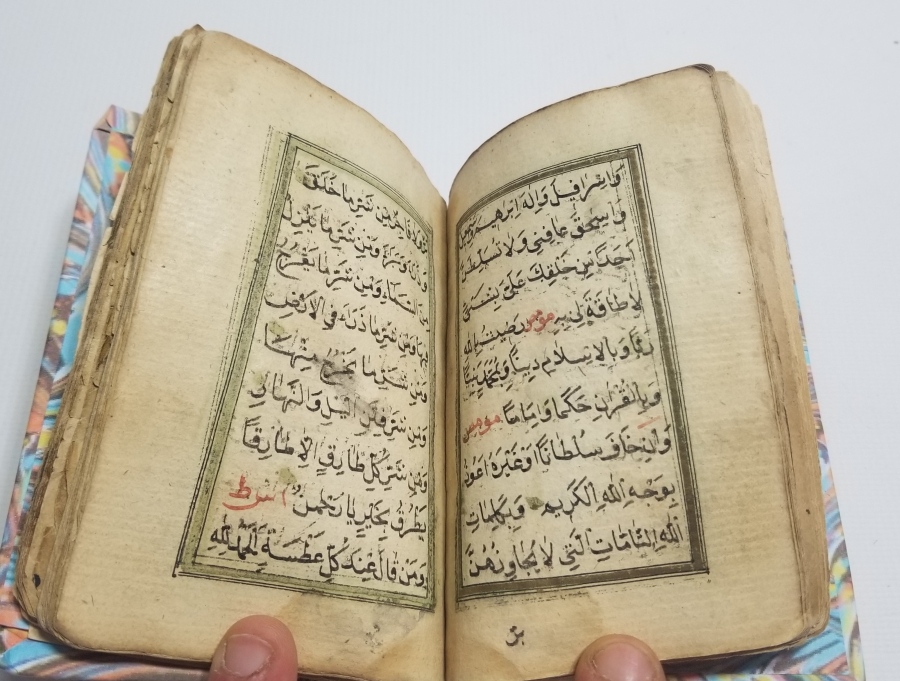 وَاِسْرَافِيلَ وَاِلهَ اِبْرهِيمَ
وَاِسْحقَ عَافِنِي وَلَا تُسَلِّطَنَّ
اَحَدًا مِنْ خَلْقِكَ عَلَيَّ بِشَيْءٍ
لَا طَاقَةَ لِي بِهِ رَضِيتُ بِاللهِ
رَبًّا وَبِالْاِسْلَامِ دِينًا وَبِمُحَمَّدٍ نَبِيًّا
وَبِالْقُرْانِ حَكَمًا وَاِمَامًا
وَاِنْ خَافَ سُلْطَانًا وَغَيْرَهُ اَعُوذُ
بِوَجْهِ اللهِ الْكَرِيمِ وَبِكَلِمَاتِ
اللهِ التَّامَّاتِ الَّتِي لَا يُجَاوِزُهُنَّ
بَرٌّ
بَرٌّ وَلَا فَاجِرٌ مِنْ شَرِّ مَا خَلَقَ
وَذَرَاَ وَبَرَاَ وَمِنْ شَرِّ مَا يَنْزِلُ
مِنَ السَّمَاءِ وَمِنْ شَرِّ مَا يَعْرُجُ
فِيهَا وَمِنْ شَرِّ مَا ذَرَاَ فِي الْاَرْضِ
وَمِنْ شَرِّ مَا يَخْرُجُ مِنْهَا
وَمِنْ شَرِّ فِتَنِ الَّيْلِ وَالنَّهَارِ
وَمِنْ شَرِّ كُلِّ طَارِقٍ اِلَّا طَارِقًا
يَطْرُقُ بِخَيْرٍ يَا رَحْمنُ
وَمَنْ قَالَ عِنْدَ كُلِّ عَطْسَةٍ اَلْحَمْدُ لِلّهِ